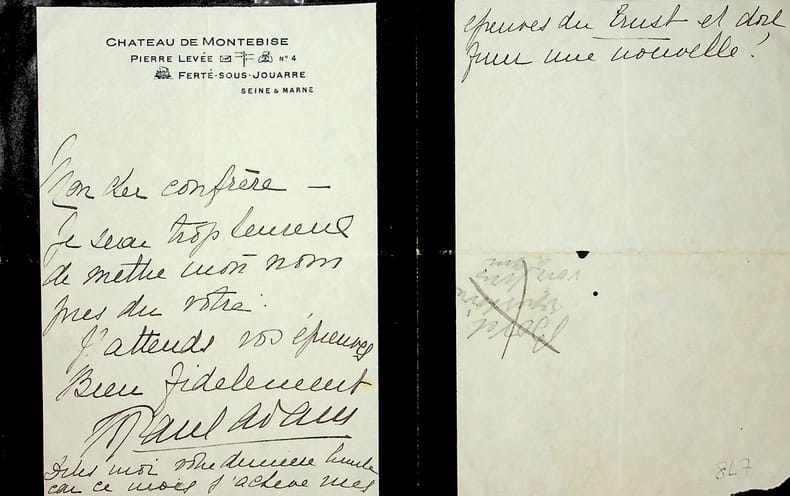 CHATEAU DE MONTEBISE
PIERRE LEVÉE Nº 4
FERTÉ-SOUS-JOUARRE
SEINE & MARNE
Mon cher confrère –
Je serai trop heureux
de mettre mon nom
près du votre.
J'attends vos épreuves
Bien fidèlement
Paul Adam
Dites moi votre dernière limite
car ce mois j'achève mes
épreuves du Trust et dois
finir une nouvelle !
847